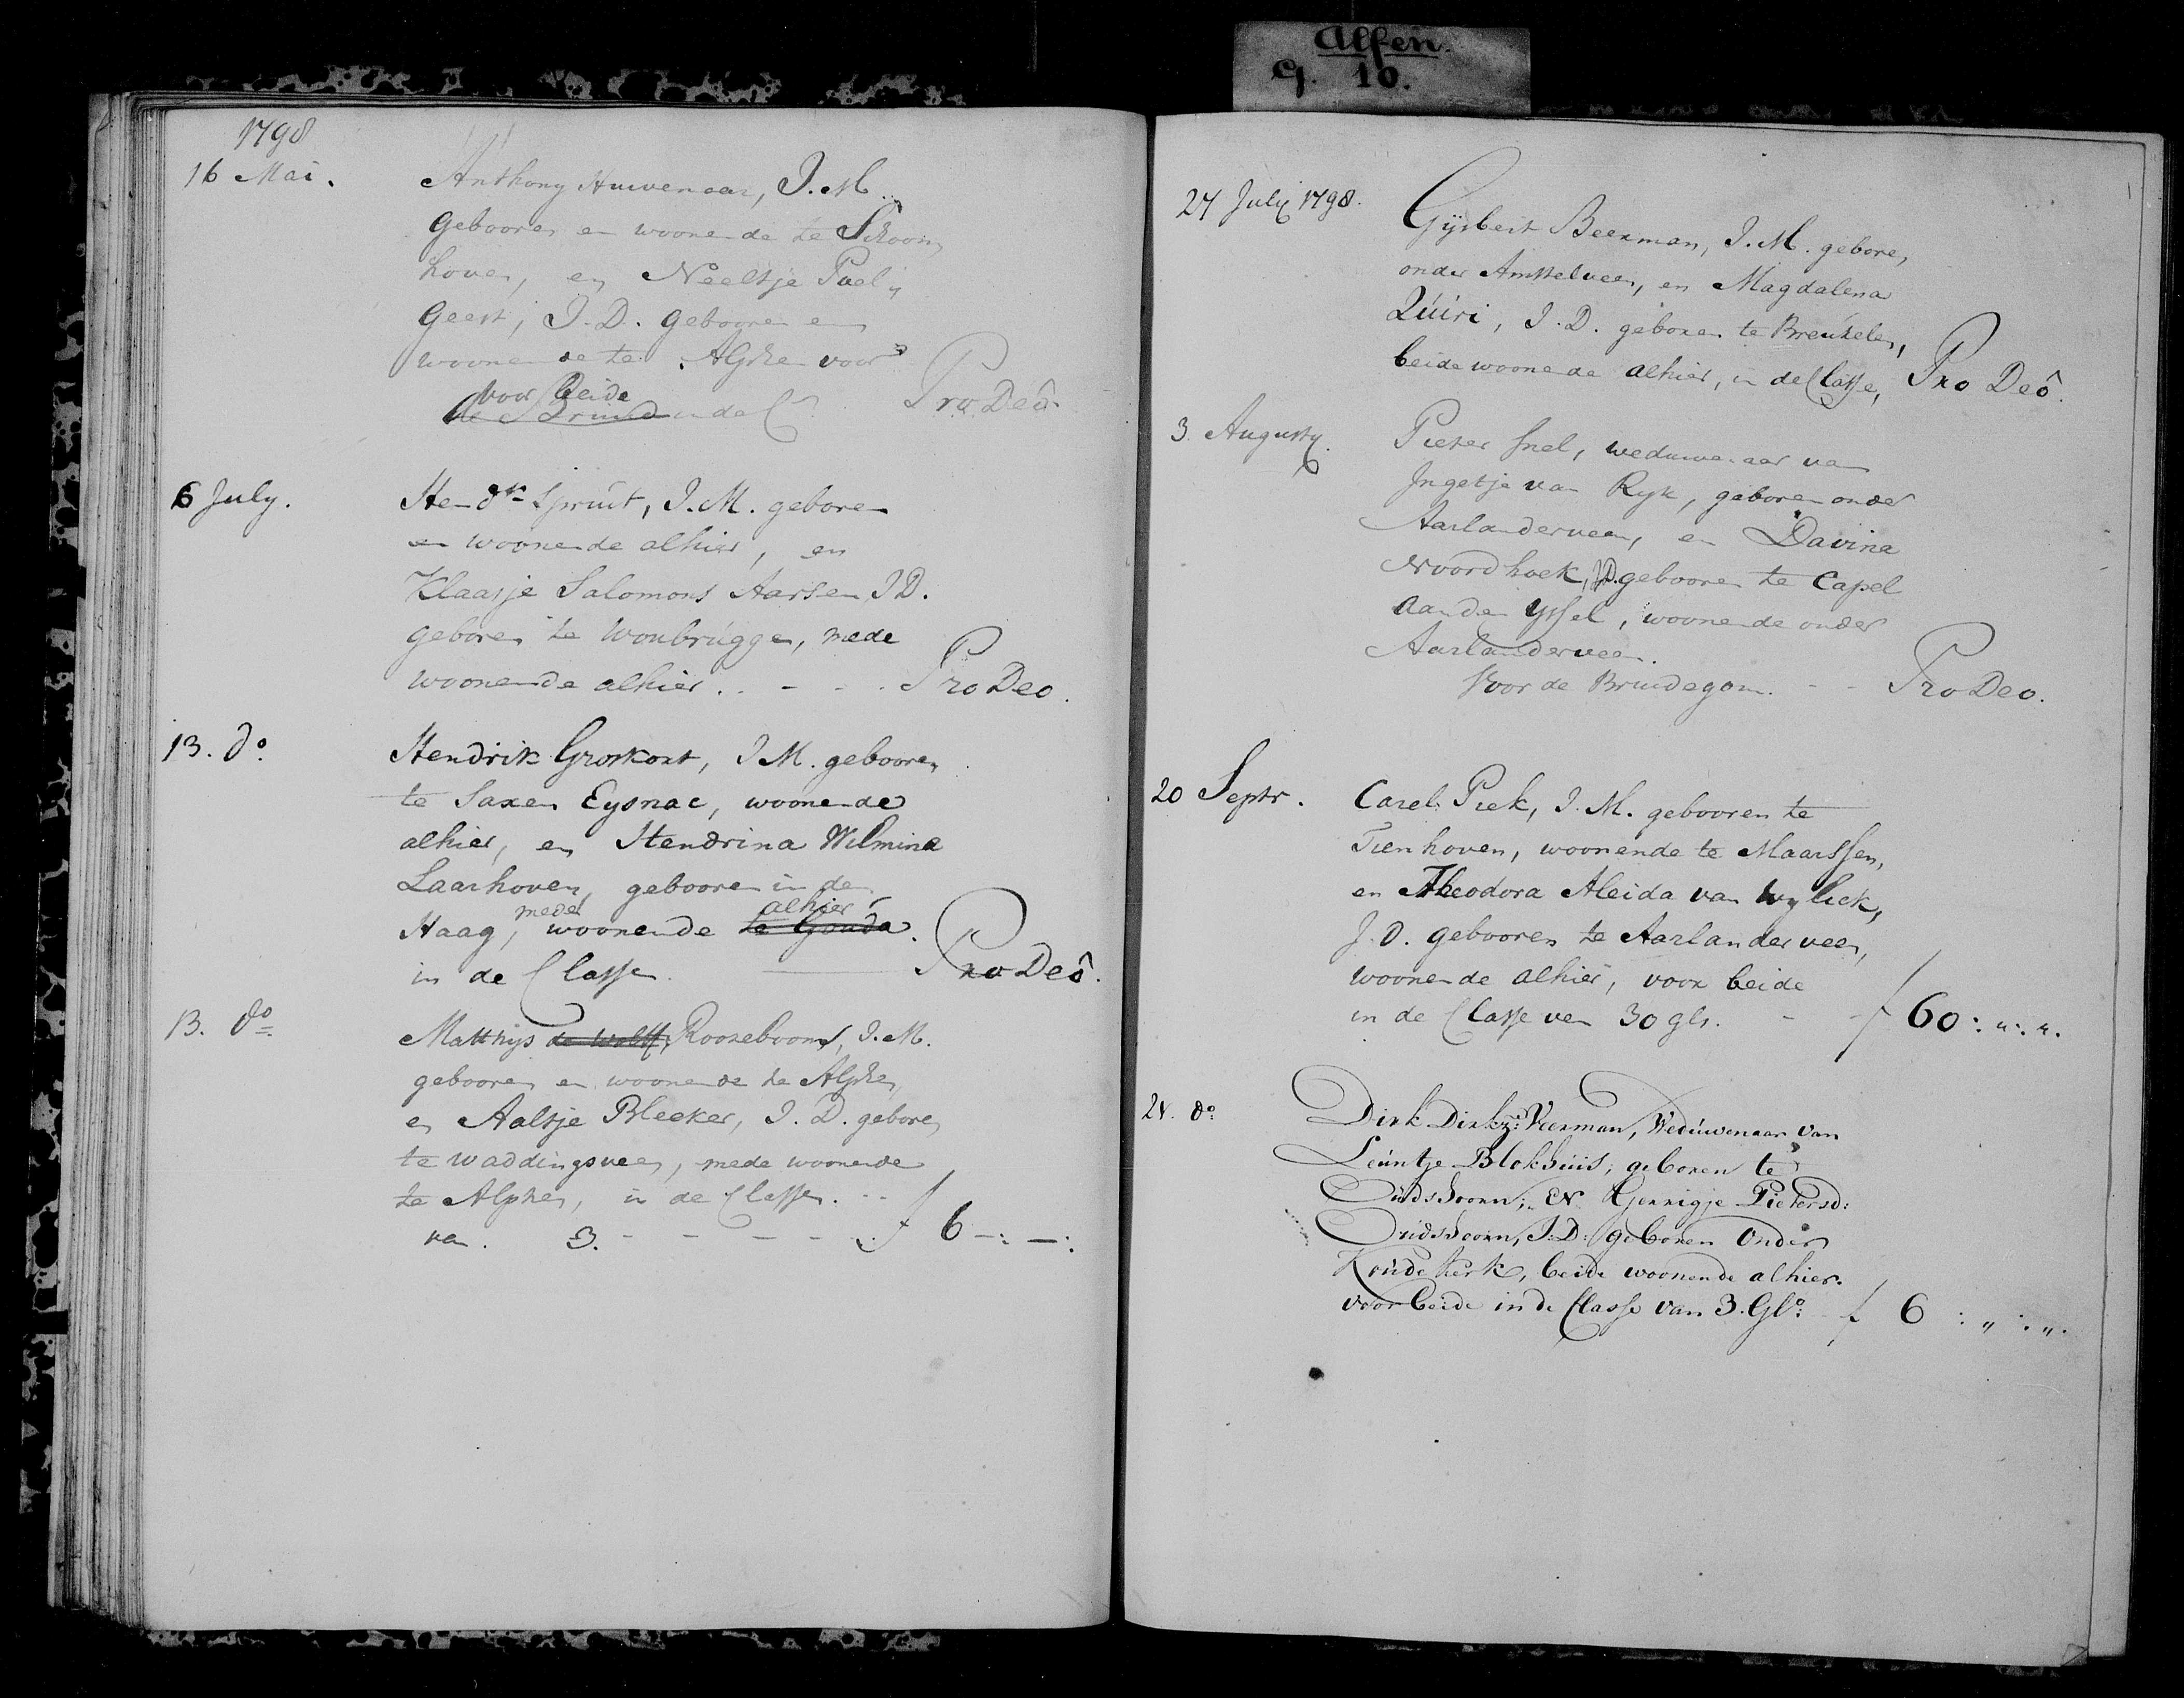 Alfen.
G. 10.
1798
16 Mai.
Anthony Huwenaar, J. M
Gebooren en woonende te Schoon
hoven, en Neeltje Poel
Geest, J. D. Gebooren en
woonende te Alphen voor
voor Beide
de Bruid in de C
Pro Deo
6 July.
Hendk Spruit, J. M. geboren
en woonende alhier, en
Klaasje Salomons Aarsen J D.
geboren te Woubrugge, mede
woonende alhier. . - - . Pro Deo.
13. do
Hendrik Groskort, J M. gebooren
te Saxen Eysnac, woonende
alhier, en Hendrina Wilmina
Laarhoven, gebooren in den
mede alhier
Haag, woonende te Gouda.
in de Classe. Pro Deo.
13. do
Matthijs de Wolff, Rooseboom, J. M.
gebooren en woonende te Alphen
en Aaltje Bleeker, J. D. geboren
te Waddingsveen, mede woonende
te Alphen, in de Classe. - -
van. 3. - - - - - f 6 -: -:
27 July 1798.
Gijsbert Beerman, J. M. geboren
onder Amstelveen, en Magdalena
Quiri, J. D. geboren te Breukelen,
beide woonende alhier, in de Classe, Pro Deo.
3. Augusty.
Pieter Snel, weduwenaar van
Ingetje van Ryk, geboren onder
Aarlanderveen, en Davina
Noordhoek, J.D. gebooren te Capel
aan den Yssel, woonende onder
Aarlanderveen.
Voor de Bruidegom. - - Pro Deo.
20 Septr.
Carel Piek, J. M. gebooren te
Tienhoven, woonende te Maarssen,
en Theodora Aleida van Wylick,
J. D. gebooren te Aarlanderveen,
woonende alhier, voor beide
in de Classe van 30 gls. - - f 60: ": ".
21. do
Dirk Dirkz: Veerman, Weduwenaar van
Leuntje Blokhuis, geboren te
Oudshoorn; EN Gerrigje Pietersd:
Oudshoorn, J: D: geboren Onder
Koudekerk, beide woonende alhier.
voor beide in de Classe van 3. Gls: f 6 : " : ".